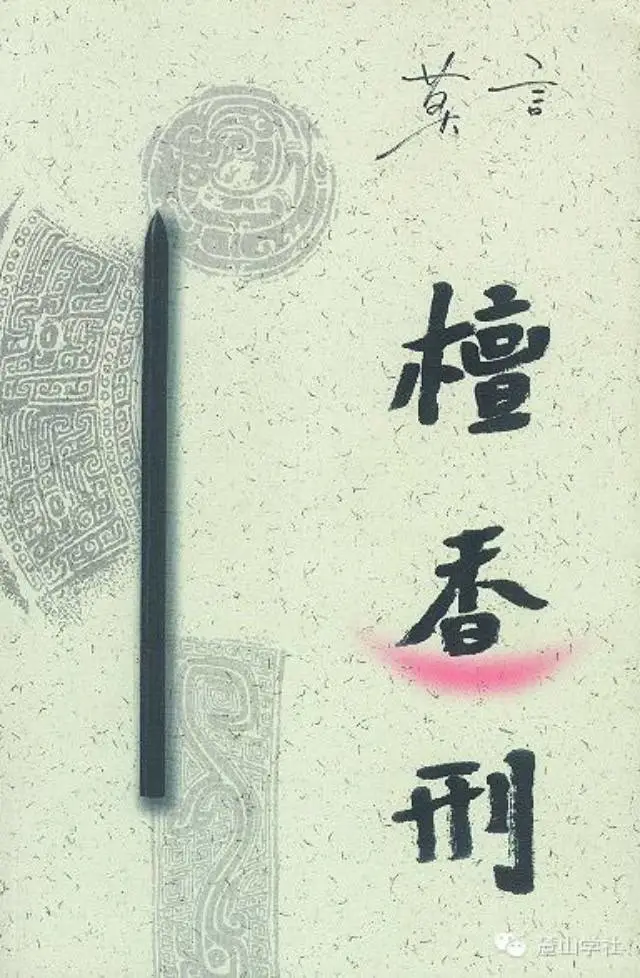 莫言
檀香刑
麓山学社